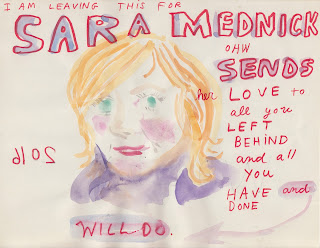 I AM LEAVING THIS FOR
SARA MEDNICK
OHW
SENDS
her LOVE to
all you
LEFT
BEHIND
and all
YOU
HAVE and
DONE
WILL DO.